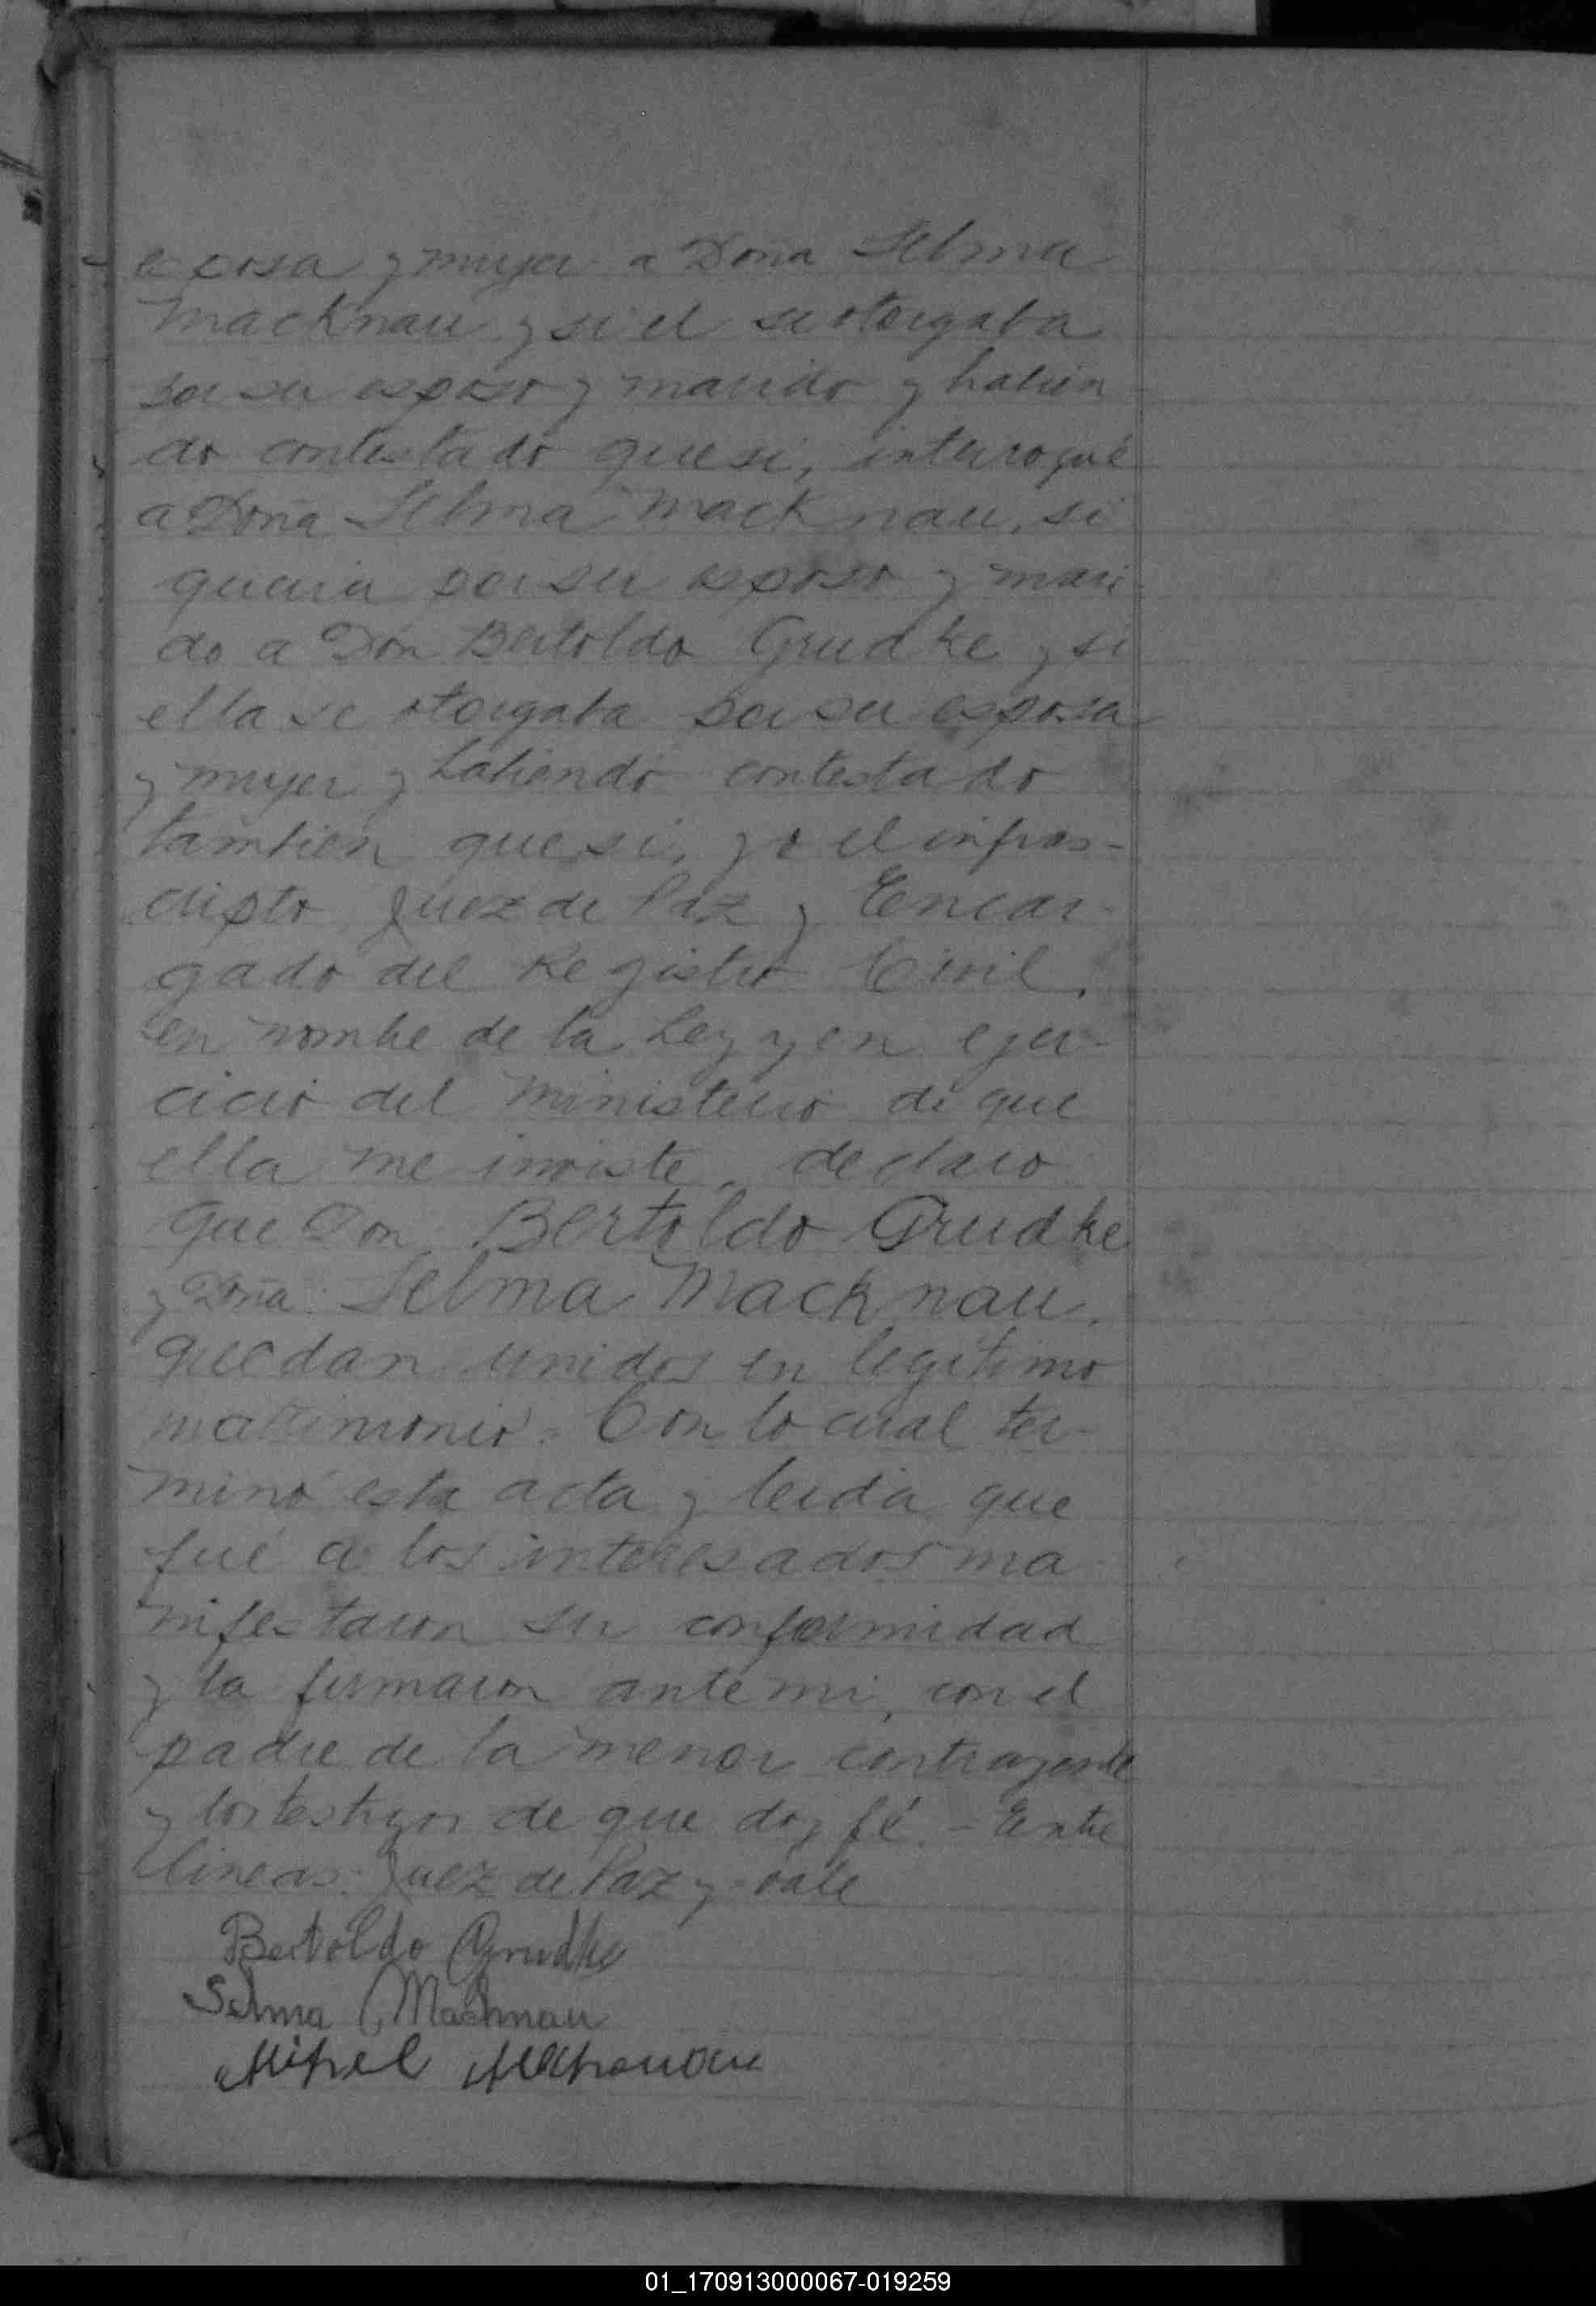 esposa y mujer a Doña Selma
Macknau y si el se otorgaba
por su esposo y marido y habien
do contestado que si, interrogué
a Doña Selma Macknau, si
queria por su esposo y mari-
do a Don Bertoldo Grudke y si
ella se otorgaba por su esposa
y mujer y habiendo contestado
tambien que si, yo el infras-
cripto Juez de Paz y Encar-
gado del Registro Civil,
en nombe de la Ley y en ejer-
cicio del ministerio de que
ella me inviste, declaro
que Don Bertoldo Grudke
y Doña Selma Macknau,
quedan unidos en legítimo
matrimonio. Con lo cual ter-
minó esta acta y leida que
fué a los interesados ma-
nifestaron su conformidad
y la firmaron ante mi, con el
padre de la menor contrayente
y los testigos de que doy fé. - Entre
lineas: Juez de Paz y - vale
Bertoldo Grudke
Selma Macknau
01_170913000067-019259